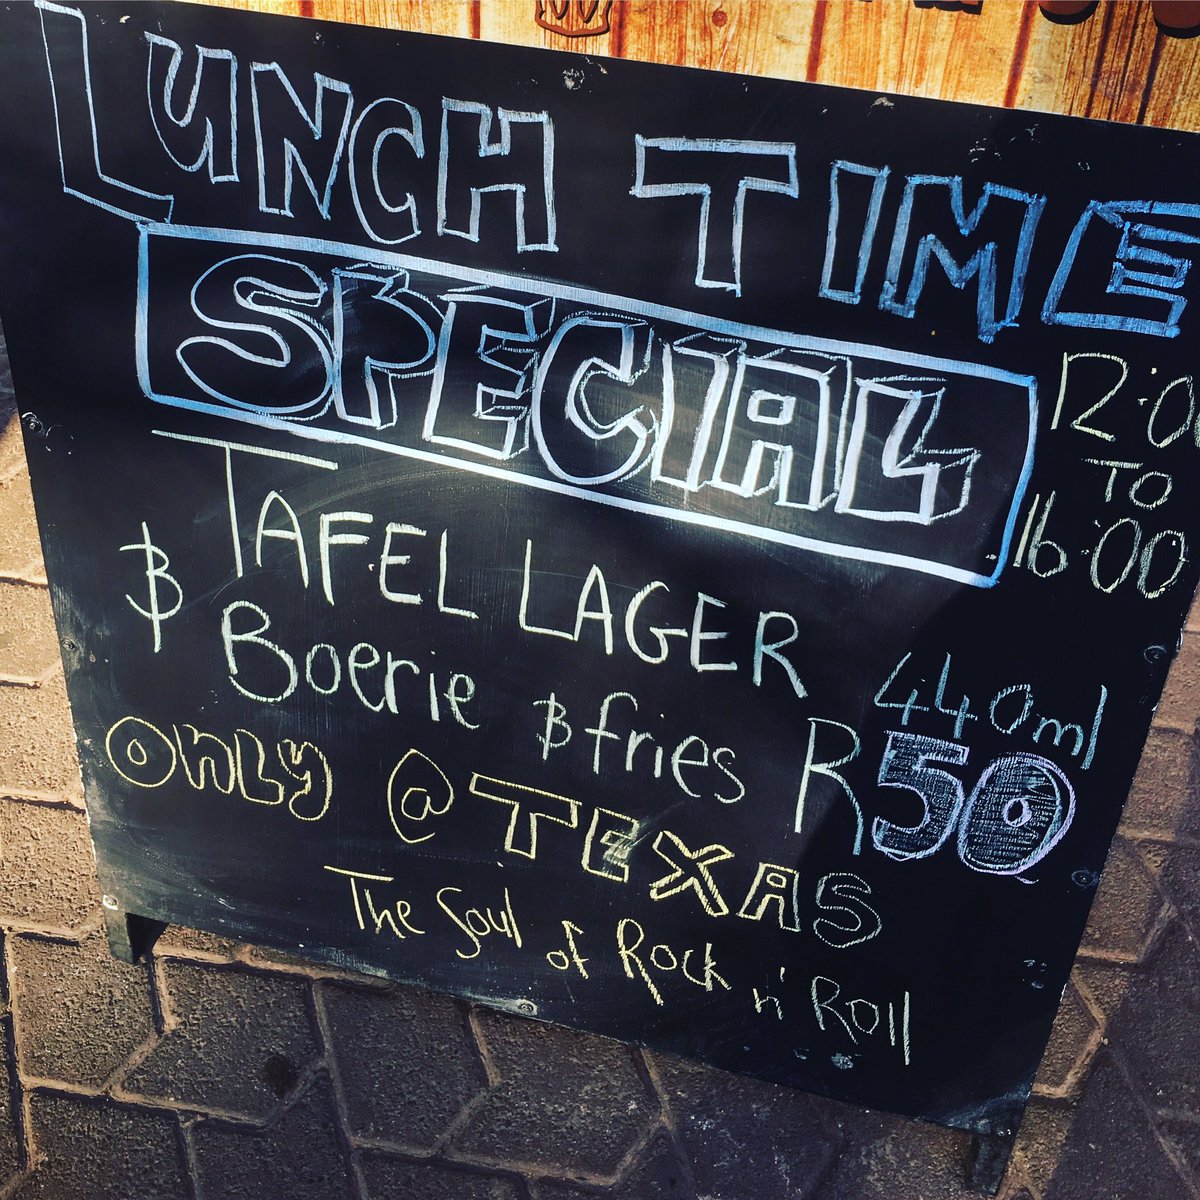 LUNCH TIME
SPECIAL
12:0
TO
16:00
TAFEL LAGER 440ml
& Boerie & fries R50
Only @ TEXAS
The Soul of Rock n' Roll